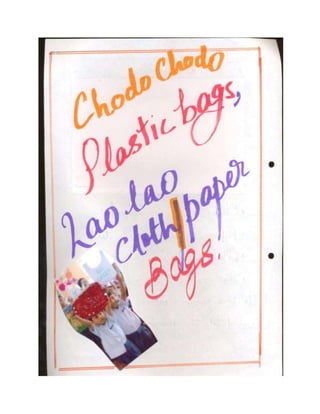 Chodo Chodo
Plastic bags,
Lao lao
Cloth/paper
Bags.